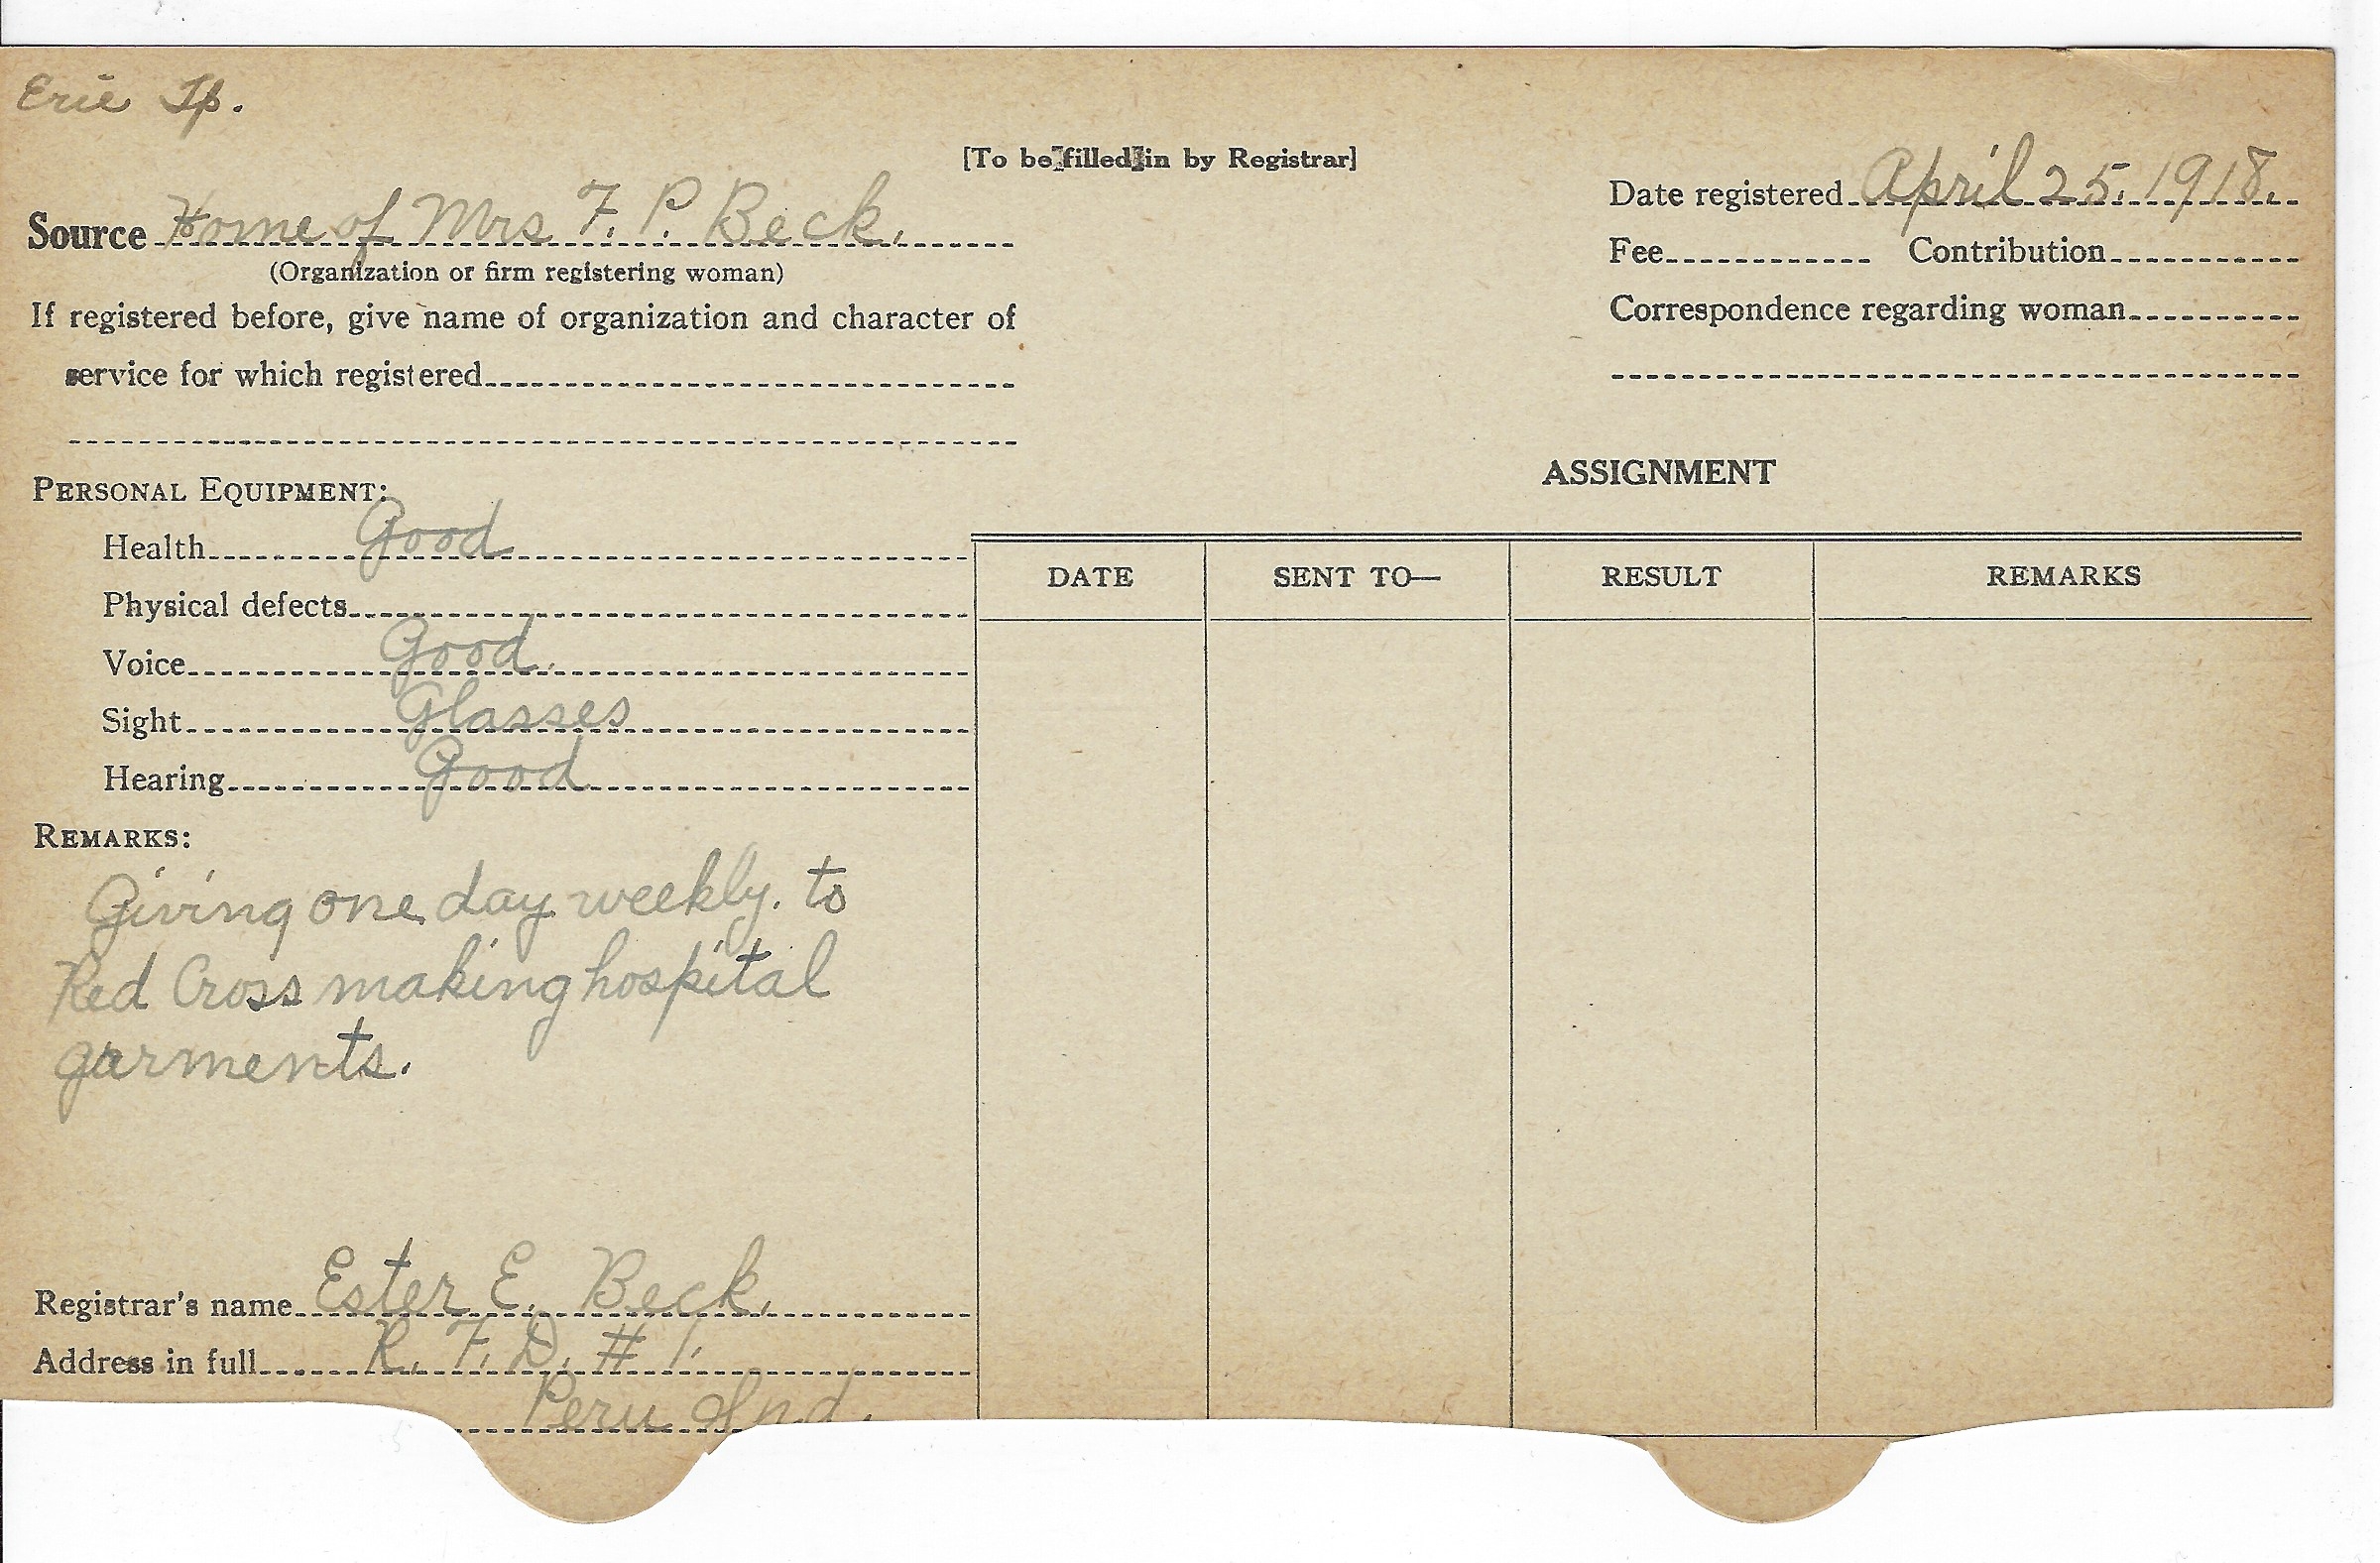 Erie Tp.
[To be filled in by Registrar]
Source Home of Mrs F. P. Beck.
(Organization or firm registering woman)
If registered before, give name of organization and character of
service for which registered
Date registered April 25, 1918.
Fee Contribution
Correspondence regarding woman
PERSONAL EQUIPMENT:
Health Good
Physical defects
Voice Good.
Sight Glasses
Hearing Good
REMARKS:
Giving one day weekly. to
Red Cross making hospital
garments.
Registrar's name Ester E. Beck.
Address in full R. F. D. # 1.
Peru Ind.
ASSIGNMENT
DATE SENT TO— RESULT REMARKS